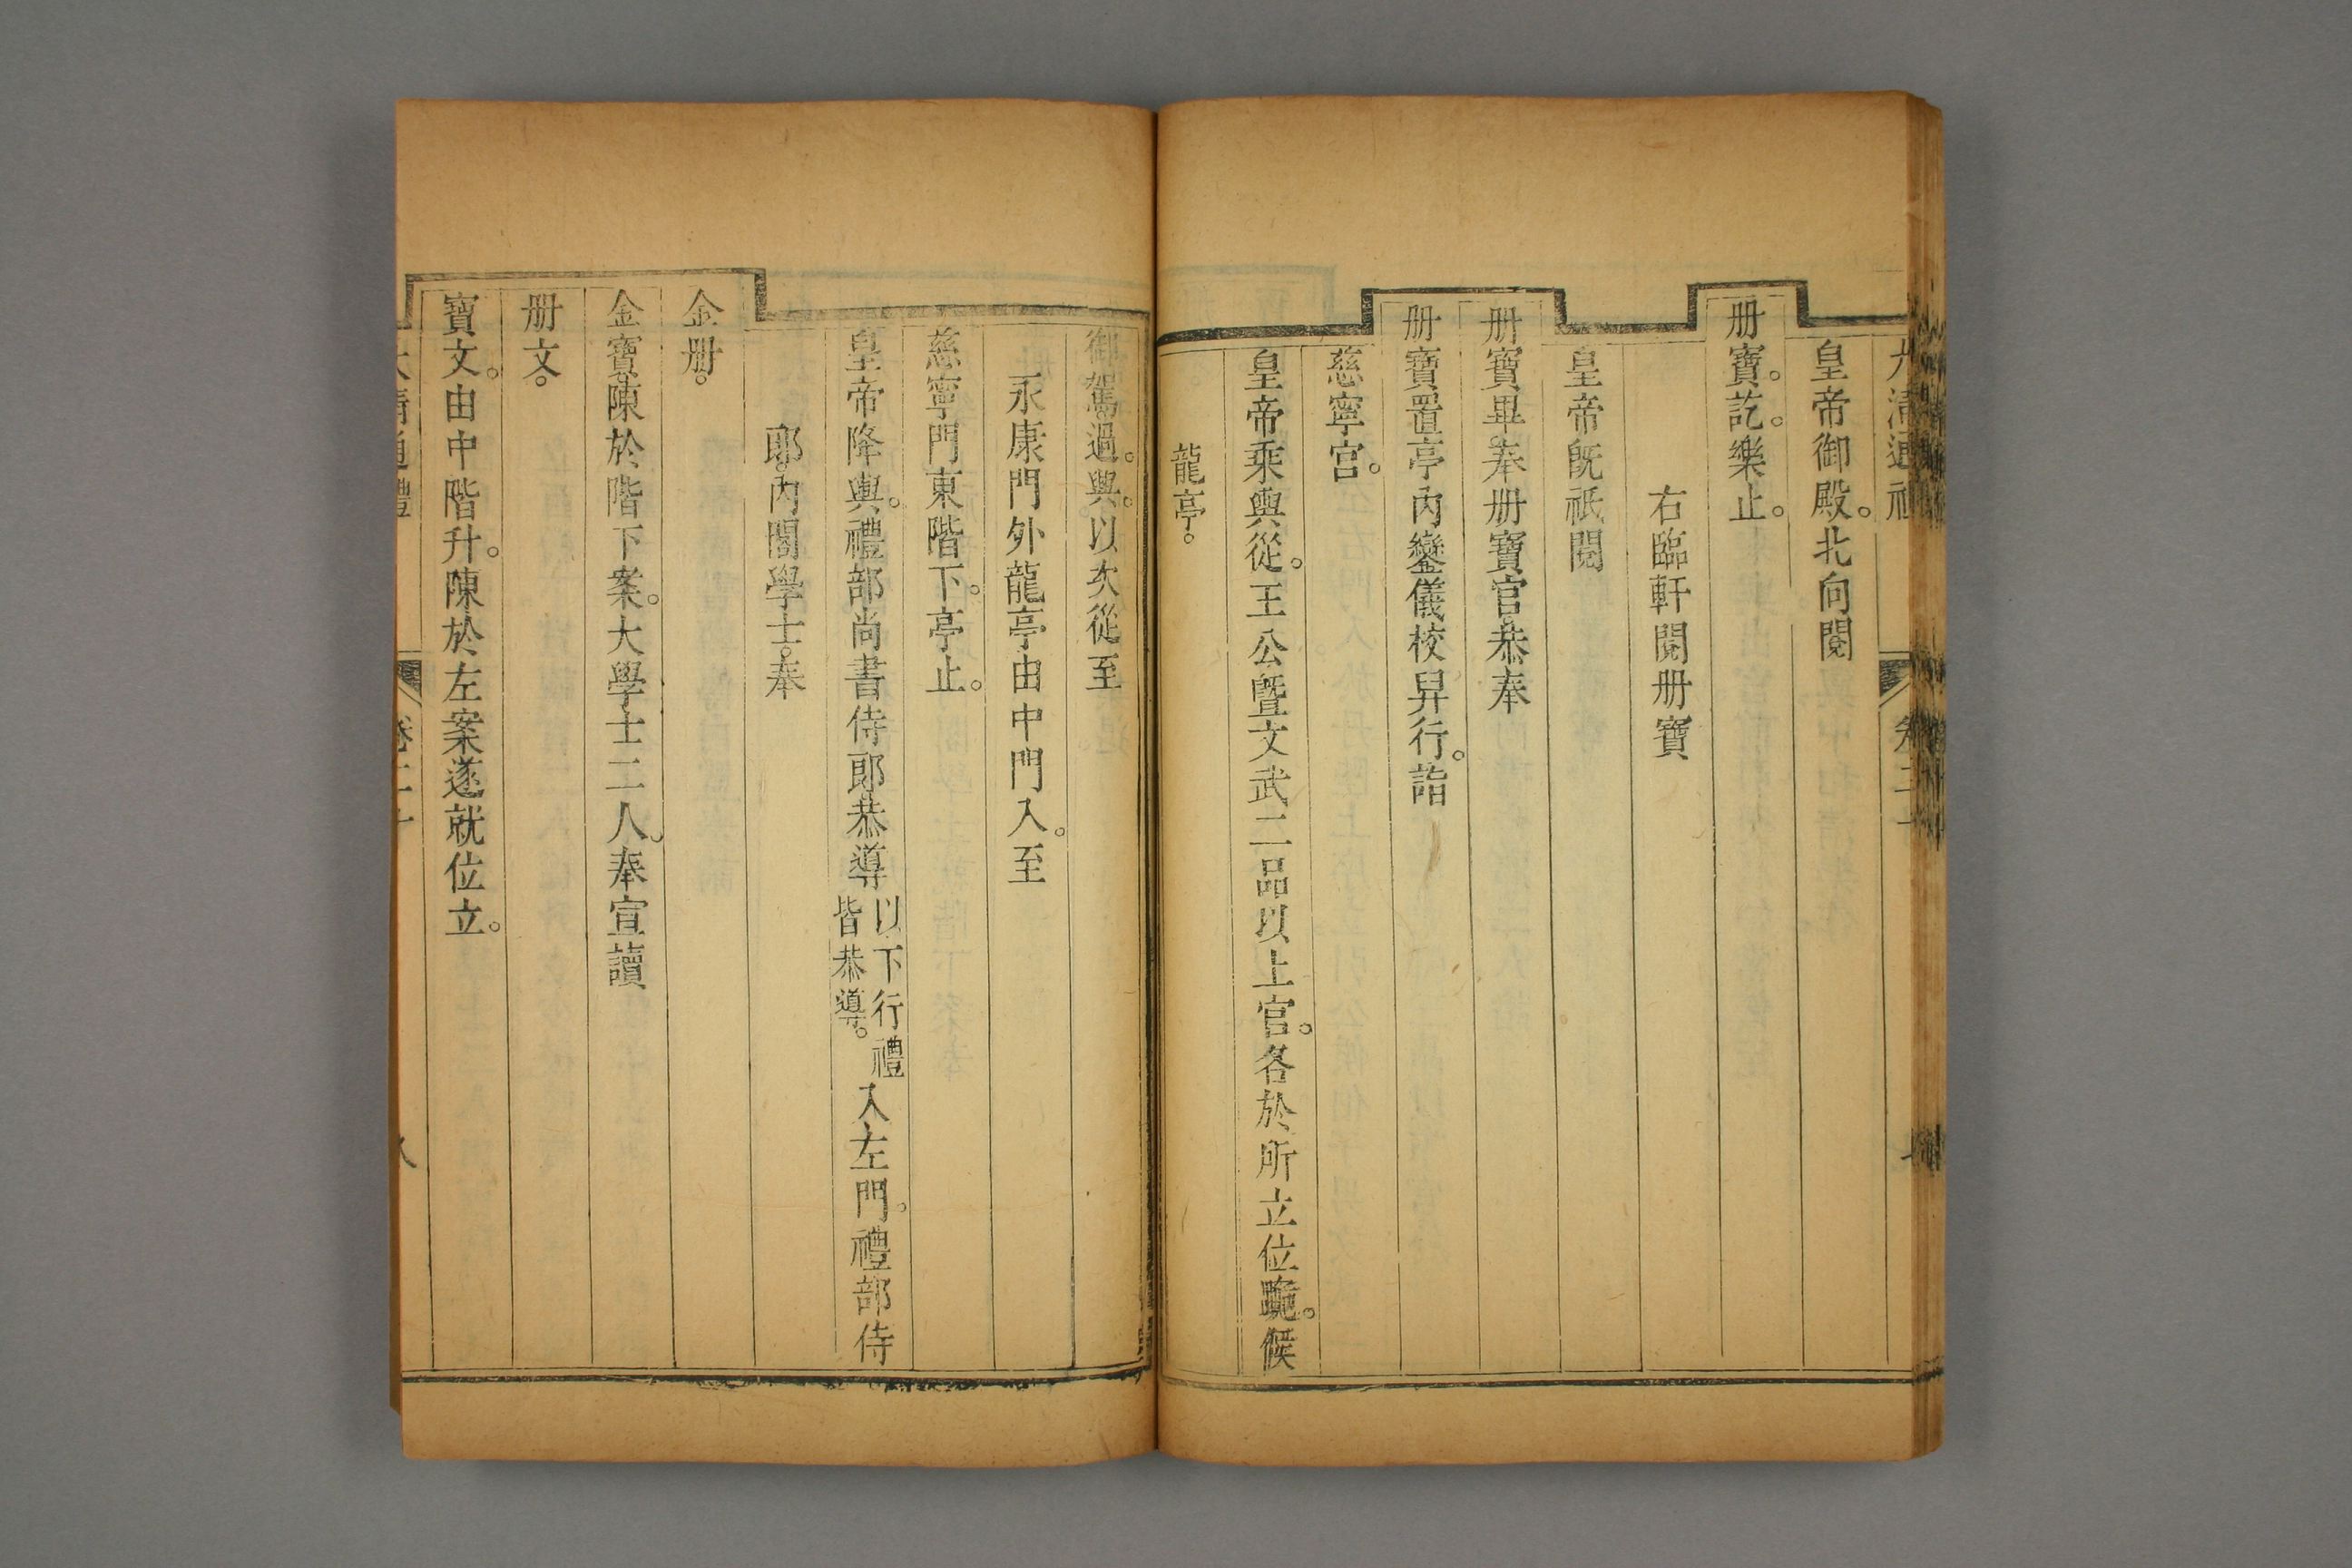 大清通禮
皇帝御殿。北向閱
册寶。訖。樂止。
右臨軒閱册寶
皇帝旣祇閱
册寶畢。奉册寶官恭奉
册寶置亭內。鑾儀校舁行。詣
慈寧宮。
皇帝乘輿從。王公曁文武二品以上官。各於所立位跪。候
龍亭。
御駕過。興。以次從至
永康門外。龍亭由中門入。至
慈寧門東階下。亭止。
皇帝降輿。禮部尚書侍郎恭導以下行禮皆恭導。入左門。禮部侍
郎。內閣學士。奉
金册。
金寶。陳於階下案。大學士二人。奉宣讀
册文。
寶文。由中階升。陳於左案。遂就位立。
大清通禮
八